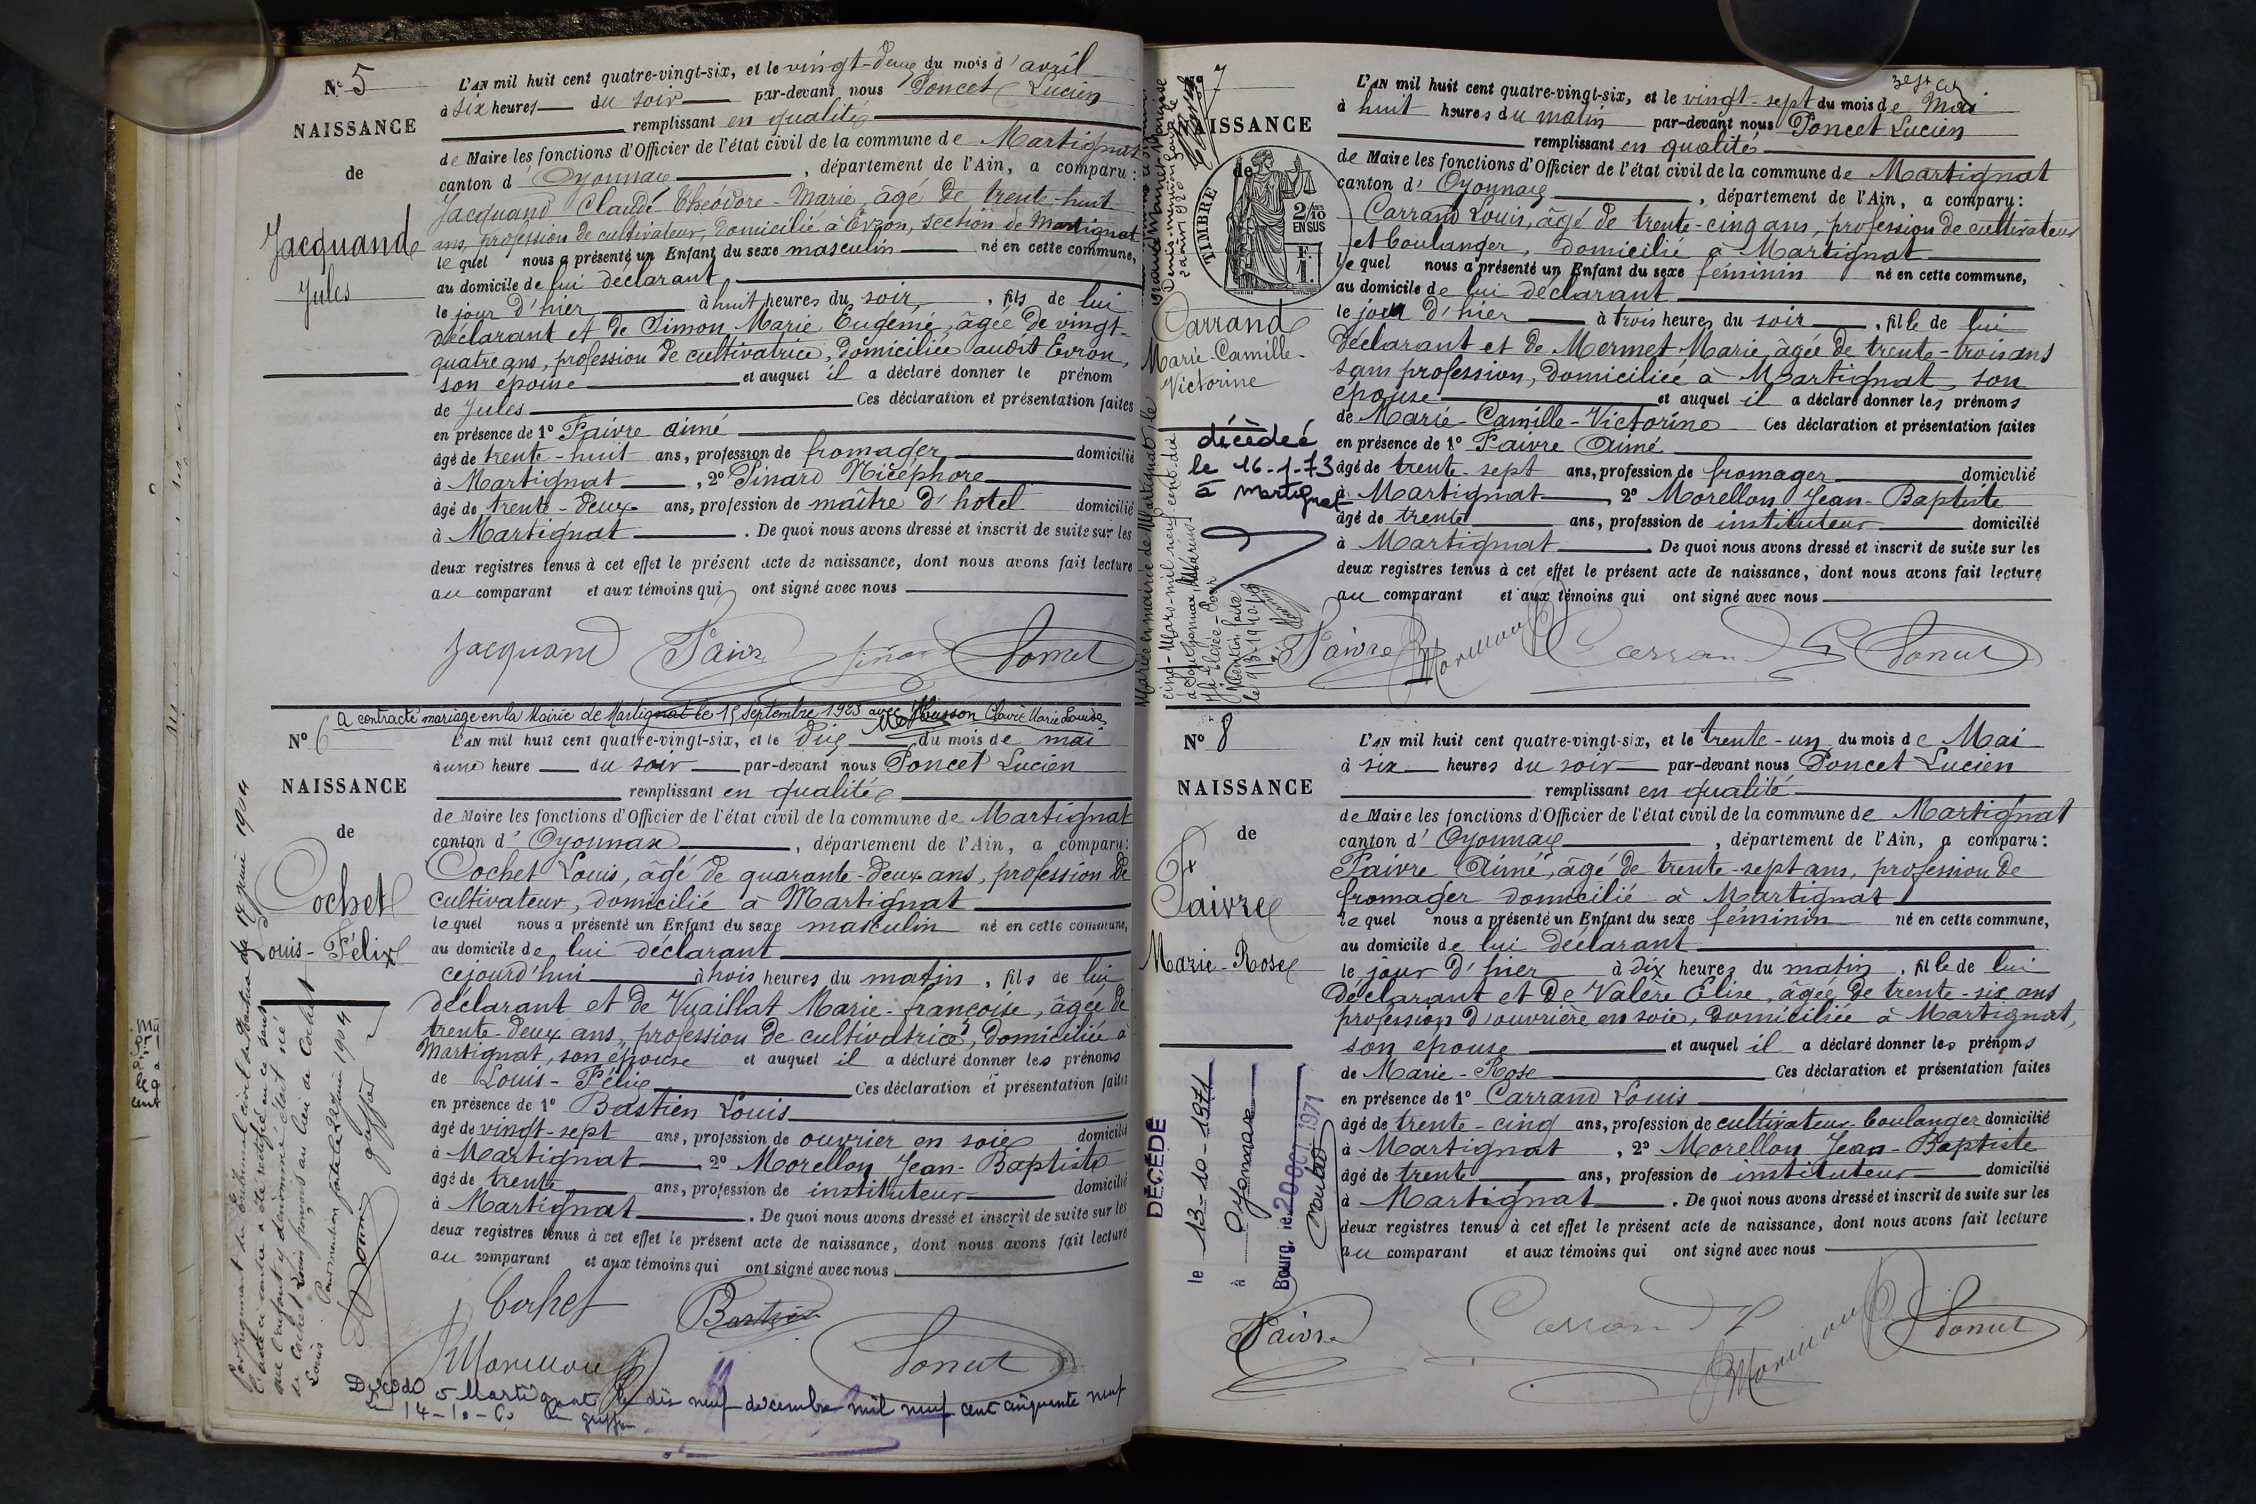 N° 5
NAISSANCE
de
Jacquand
Jules
L'AN mil huit cent quatre-vingt-six, et le vingt-deux du mois d'avril
à six heures du soir par-devant nous Poncet Lucien
remplissant en qualité
de Maire les fonctions d'Officier de l'état civil de la commune de Martignat
canton d'Oyonnax, département de l'Ain, a comparu:
Jacquand Claude Théodore-Marie, âgé de trente-huit
ans, profession de cultivateur, domicilié à Evron, section de Martignat
le quel nous a présenté un Enfant du sexe masculin né en cette commune,
au domicile de lui déclarant
le jour d'hier à huit heures du soir, fils de lui
déclarant et de Simon Marie Eugénie, âgée de vingt-
quatre ans, profession de cultivatrice, domiciliée audit Evron,
son épouse et auquel il a déclaré donner le prénom
de Jules Ces déclaration et présentation faites
en présence de 1° Faivre Aimé
âgé de trente-huit ans, profession de fromager domicilié
à Martignat, 2° Pinard Nicéphore
âgé de trente-deux ans, profession de maître d'hotel domicilié
à Martignat. De quoi nous avons dressé et inscrit de suite sur les
deux registres tenus à cet effet le présent acte de naissance, dont nous avons fait lecture
au comparant et aux témoins qui ont signé avec nous
Jacquand Faivre Pinard Poncet
N° 6
a contracté mariage en la Mairie de Martignat le 15 Septembre 1923 avec Husson Clovie Marie Louise
NAISSANCE
de
Cochet
Louis-Félix
L'AN mil huit cent quatre-vingt-six, et le dix du mois de mai
à une heure du soir par-devant nous Poncet Lucien
remplissant en qualité
de Maire les fonctions d'Officier de l'état civil de la commune de Martignat
canton d'Oyonnax, département de l'Ain, a comparu:
Cochet Louis, âgé de quarante-deux ans, profession de
cultivateur, domicilié à Martignat
le quel nous a présenté un Enfant du sexe masculin né en cette commune,
au domicile de lui déclarant
cejourd'hui à trois heures du matin, fils de lui
déclarant et de Vuaillat Marie-françoise, âgée de
trente-deux ans, profession de cultivatrice, domiciliée à
Martignat, son épouse et auquel il a déclaré donner les prénoms
de Louis-Félix Ces déclaration et présentation faites
en présence de 1° Bastien Louis
âgé de vingt-sept ans, profession de ouvrier en soie domicilié
à Martignat 2° Morellon Jean-Baptiste
âgé de trente ans, profession de instituteur domicilié
à Martignat. De quoi nous avons dressé et inscrit de suite sur les
deux registres tenus à cet effet le présent acte de naissance, dont nous avons fait lecture
au comparant et aux témoins qui ont signé avec nous
Cochet Bastien
Morellon Poncet
Décédé à Martignat le dix neuf décembre mil neuf cent cinquante neuf
7
NAISSANCE
de
TIMBRE
2/10
EN SUS
F.
1.
Carrand
Marie-Camille-
Victorine
décédée
le 16-1-73
à Martignat
L'AN mil huit cent quatre-vingt-six, et le vingt-sept du mois de Mai
à huit heures du matin par-devant nous Poncet Lucien
remplissant en qualité
de Maire les fonctions d'Officier de l'état civil de la commune de Martignat
canton d'Oyonnax, département de l'Ain, a comparu:
Carrand Louis, âgé de trente-cinq ans, profession de cultivateur
et boulanger, domicilié à Martignat
le quel nous a présenté un Enfant du sexe féminin né en cette commune,
au domicile de lui déclarant
le jour d'hier à trois heures du soir, fille de lui
déclarant et de Mermet Marie, âgée de trente-trois ans
sans profession, domiciliée à Martignat, son
épouse et auquel il a déclaré donner les prénoms
de Marie-Camille-Victorine Ces déclaration et présentation faites
en présence de 1° Faivre Aimé
âgé de trente-sept ans, profession de fromager domicilié
à Martignat 2° Morellon Jean-Baptiste
âgé de trente ans, profession de instituteur domicilié
à Martignat. De quoi nous avons dressé et inscrit de suite sur les
deux registres tenus à cet effet le présent acte de naissance, dont nous avons fait lecture
au comparant et aux témoins qui ont signé avec nous
Faivre Morellon Carrand Poncet
N° 8
NAISSANCE
de
Faivre
Marie-Rose
DÉCÉDÉ
le 13-10-1971
à Oyonnax
Bourg, le 20 OCT 1971
L'AN mil huit cent quatre-vingt-six, et le trente-un du mois de Mai
à six heures du soir par-devant nous Poncet Lucien
remplissant en qualité
de Maire les fonctions d'Officier de l'état civil de la commune de Martignat
canton d'Oyonnax, département de l'Ain, a comparu:
Faivre Aimé, âgé de trente-sept ans, profession de
fromager domicilié à Martignat
le quel nous a présenté un Enfant du sexe féminin né en cette commune,
au domicile de lui déclarant
le jour d'hier à dix heures du matin, fille de lui
déclarant et de Valère Elise, âgée de trente-six ans
profession d'ouvrière en soie, domiciliée à Martignat,
son épouse et auquel il a déclaré donner les prénoms
de Marie-Rose Ces déclaration et présentation faites
en présence de 1° Carrand Louis
âgé de trente-cinq ans, profession de cultivateur-boulanger domicilié
à Martignat, 2° Morellon Jean-Baptiste
âgé de trente ans, profession de instituteur domicilié
à Martignat. De quoi nous avons dressé et inscrit de suite sur les
deux registres tenus à cet effet le présent acte de naissance, dont nous avons fait lecture
au comparant et aux témoins qui ont signé avec nous
Faivre Carrand Morellon Poncet